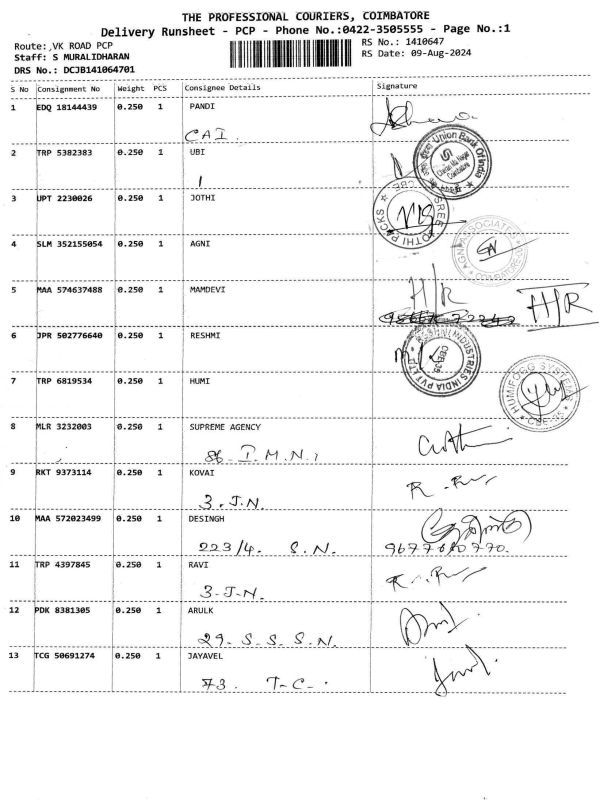 THE PROFESSIONAL COURIERS, COIMBATORE
Delivery Runsheet - PCP - Phone No.:0422-3505555 - Page No.:1
Route: ,VK ROAD PCP
RS No.: 1410647
Staff: S MURALIDHARAN
RS Date: 09-Aug-2024
DRS No.: DCJB141064701
S No Consignment No Weight PCS Consignee Details Signature
1 EDQ 18144439 0.250 1 PANDI
CAI.
2 TRP 5382383 0.250 1 UBI
Union Bank Of India
Coimbatore
3 UPT 2230026 0.250 1 JOTHI
SREE JOTHI PACKS
CBE
4 SLM 352155054 0.250 1 AGNI
AGNI ASSOCIATE
COIMBATORE
5 MAA 574637488 0.250 1 MAMDEVI
H/R
H/R
6 JPR 502776640 0.250 1 RESHMI
INDUSTRIES INDIA PVT LTD
CBE-35
7 TRP 6819534 0.250 1 HUMI
HUMIFOGG SYSTEMS
8 MLR 3232003 0.250 1 SUPREME AGENCY
86. I.M.N.
9 RKT 9373114 0.250 1 KOVAI
3. J.N.
10 MAA 572023499 0.250 1 DESINGH
223/4. S.N.
11 TRP 4397845 0.250 1 RAVI
3-J-N.
12 PDK 8381305 0.250 1 ARULK
29- S. S. S. N.
13 TCG 50691274 0.250 1 JAYAVEL
73. T-C-